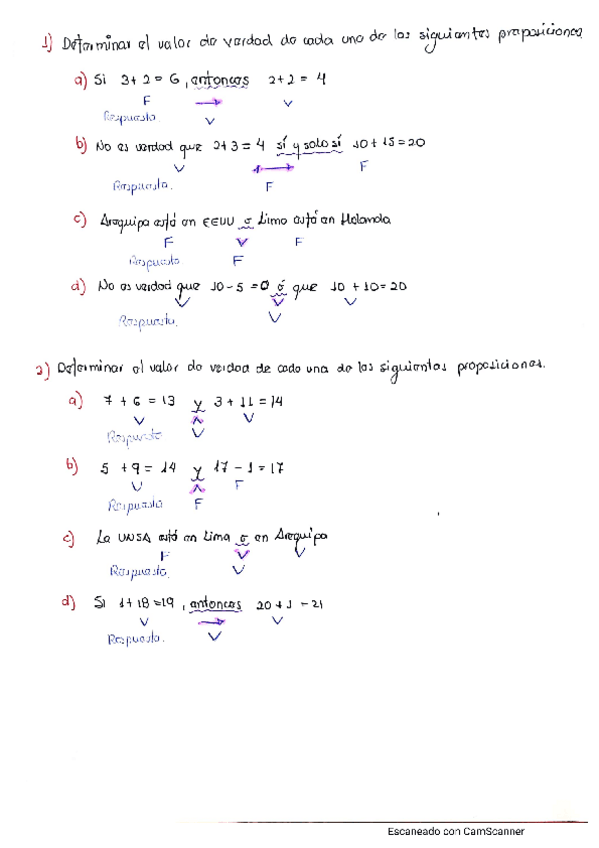 1) Determinar el valor de verdad de cada una de las siguientes proposiciones
a) Si 3+2=6, entonces 2+2=4
F → V
Respuesta V
b) No es verdad que 2+3=4 sí y solo sí 10+15=20
V ↔ F
Respuesta. F
c) Arequipa está en EEUU o Lima está en Holanda
F ∨ F
Respuesta. F
d) No es verdad que 10-5=0 ó que 10+10=20
V ∨ V
Respuesta. V
2) Determinar el valor de verdad de cada una de las siguientes proposiciones.
a) 7+6=13 y 3+11=14
V ∧ V
Respuesta V
b) 5+9=14 y 17-1=17
V ∧ F
Respuesta F
c) La UNSA está en Lima o en Arequipa
F ∨ V
Respuesta. V
d) Si 1+18=19, entonces 20+1-21
V → V
Respuesta. V
Escaneado con CamScanner